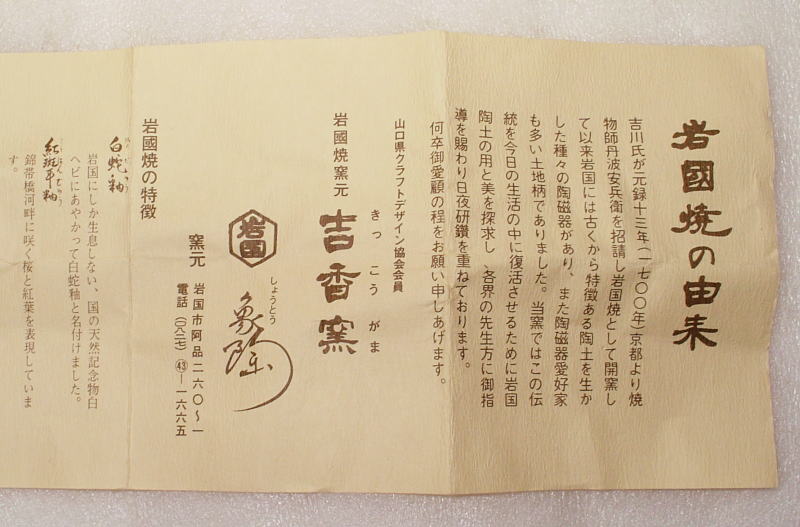 岩國焼の由来
吉川氏が元録十三年(一七〇〇年)京都より焼
物師丹波安兵衛を招請し岩国焼として開窯し
て以来岩国には古くから特徴ある陶土を生か
した種々の陶磁器があり、また陶磁器愛好家
も多い土地柄でありました。当窯ではこの伝
統を今日の生活の中に復活させるために岩国
陶土の用と美を探求し、各界の先生方に御指
導を賜わり日夜研鑽を重ねております。
何卒御愛顧の程をお願い申しあげます。
山口県クラフトデザイン協会会員
きっこうがま
岩國焼窯元 吉香窯
しょうとう
岩国
窯元 岩国市阿品二六〇〜一
電話(〇八二七)㊸―一六六五
岩國焼の特徴
白蛇釉
岩国にしか生息しない、国の天然記念物白
ヘビにあやかって白蛇釉と名付けました。
錦帯橋河畔に咲く桜と紅葉を表現していま
す。